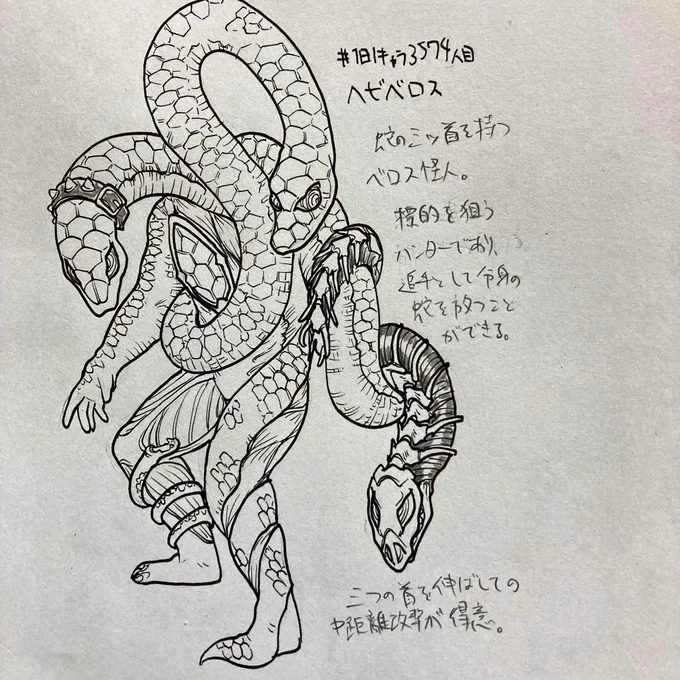 #1日1キャラ3574人目
ヘビベロス
蛇の三ッ首を持つ
ベロス怪人。
標的を狙う
ハンターであり、
追手として分身の
蛇を放つこと
ができる。
三つの首を伸ばしての
中距離攻撃が得意。